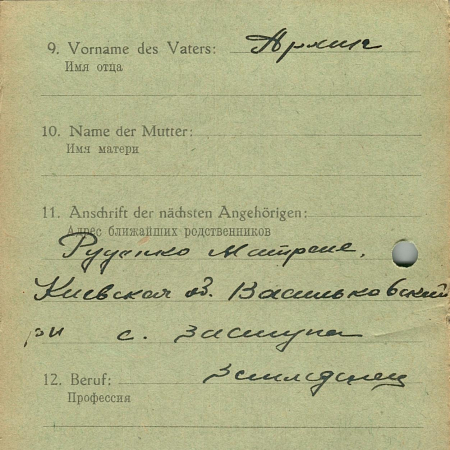 9. Vorname des Vaters: Архип
Имя отца
10. Name der Mutter:
Имя матери
11. Anschrift der nächsten Angehörigen:
Адрес ближайших родственников
Руденко Матрене,
Киевская об. Васильковский
рн с. Застуна
12. Beruf: Землделец
Профессия